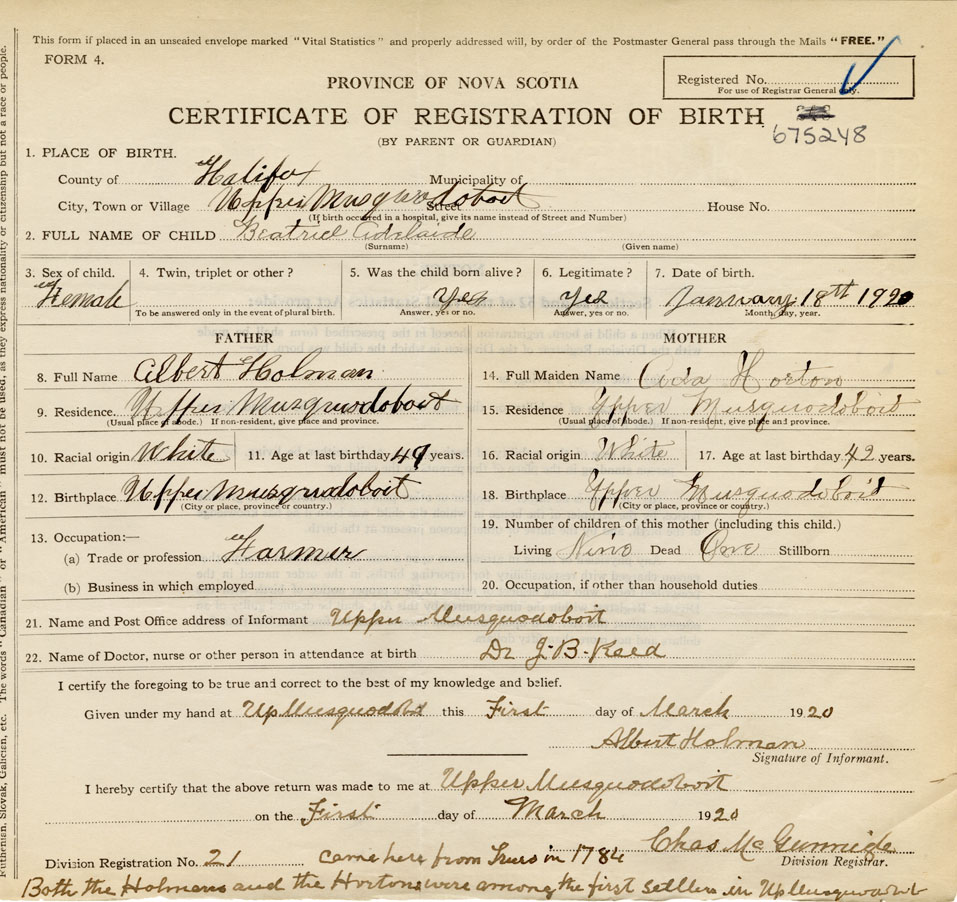 This form if placed in an unsealed envelope marked "Vital Statistics" and properly addressed will, by order of the Postmaster General pass through the Mails "FREE."
FORM 4.
Registered No.
For use of Registrar General only.
PROVINCE OF NOVA SCOTIA
CERTIFICATE OF REGISTRATION OF BIRTH
675248
(BY PARENT OR GUARDIAN)
1. PLACE OF BIRTH.
County of Halifax Municipality of
City, Town or Village Upper Musquodoboit Street House No.
(If birth occurred in a hospital, give its name instead of Street and Number)
2. FULL NAME OF CHILD Beatrice Adelaide
(Surname) (Given name)
3. Sex of child. 4. Twin, triplet or other? 5. Was the child born alive? 6. Legitimate? 7. Date of birth.
Female Yes Yes January 18th 1920
To be answered only in the event of plural birth. Answer, yes or no. Answer, yes or no. Month, day, year.
FATHER MOTHER
8. Full Name Albert Holman 14. Full Maiden Name Ada Horton
9. Residence. Upper Musquodoboit 15. Residence Upper Musquodoboit
(Usual place of abode.) If non-resident, give place and province. (Usual place of abode.) If non-resident, give place and province.
10. Racial origin White 11. Age at last birthday 49 years. 16. Racial origin White 17. Age at last birthday 42 years.
12. Birthplace Upper Musquodoboit 18. Birthplace Upper Musquodoboit
(City or place, province or country.) (City or place, province or country.)
13. Occupation:— 19. Number of children of this mother (including this child.)
(a) Trade or profession Farmer Living Nine Dead One Stillborn
(b) Business in which employed 20. Occupation, if other than household duties
21. Name and Post Office address of Informant Upper Musquodoboit
22. Name of Doctor, nurse or other person in attendance at birth Dr J-B-Reed
I certify the foregoing to be true and correct to the best of my knowledge and belief.
Given under my hand at Up Musquodobt this First day of March 1920
Albert Holman
Signature of Informant.
I hereby certify that the above return was made to me at Upper Musquodoboit
on the First day of March 1920
Chas McGunnigle
Division Registrar.
Division Registration No. 21 came here from Truro in 1784
Both the Holmans and the Hortons were among the first settlers in Up Musquodobt
The words "Canadian" or "American" must not be used, as they express nationality or citizenship but not a race or people.
Ruthenian, Slovak, Galician, etc.